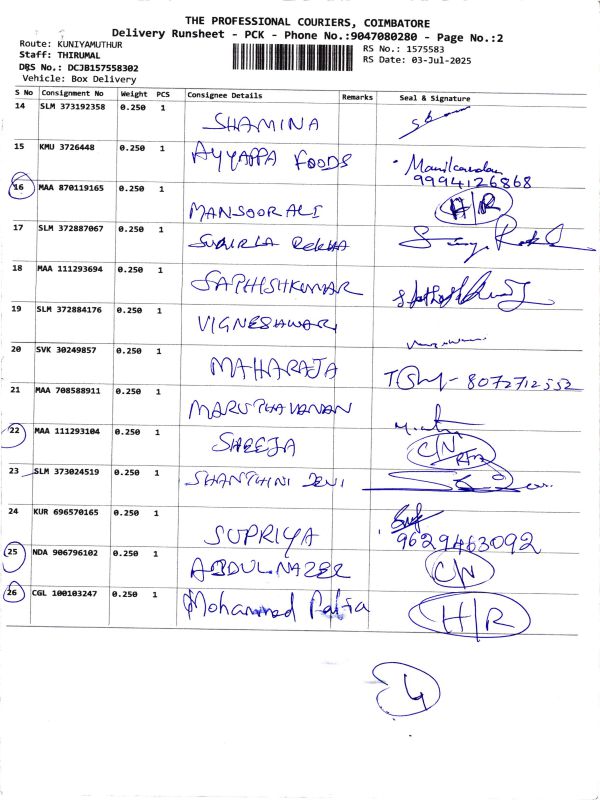 THE PROFESSIONAL COURIERS, COIMBATORE
Delivery Runsheet - PCK - Phone No.:9047080280 - Page No.:2
Route: KUNIYAMUTHUR
Staff: THIRUMAL
DRS No.: DCJB157558302
Vehicle: Box Delivery
RS No.: 1575583
RS Date: 03-Jul-2025
S No Consignment No Weight PCS Consignee Details Remarks Seal & Signature
14 SLM 373192358 0.250 1 SHAMINA
15 KMU 3726448 0.250 1 AYYAPPA FOODS Manikandan
9994126868
16 MAA 870119165 0.250 1 MANSOOR ALI H/R
17 SLM 372887067 0.250 1 REKHA
18 MAA 111293694 0.250 1 SATHISHKUMAR
19 SLM 372884176 0.250 1 VIGNESHWARI
20 SVK 30249857 0.250 1 MAHARAJA 8072712552
21 MAA 708588911 0.250 1 MARUTHAVANAN
22 MAA 111293104 0.250 1 SHEEJA C/N
23 SLM 373024519 0.250 1 SHANTHINI DEVI
24 KUR 696570165 0.250 1 SUPRIYA 9629463092
25 NDA 906796102 0.250 1 ABDUL NAZER C/N
26 CGL 100103247 0.250 1 Mohammed H/R
4